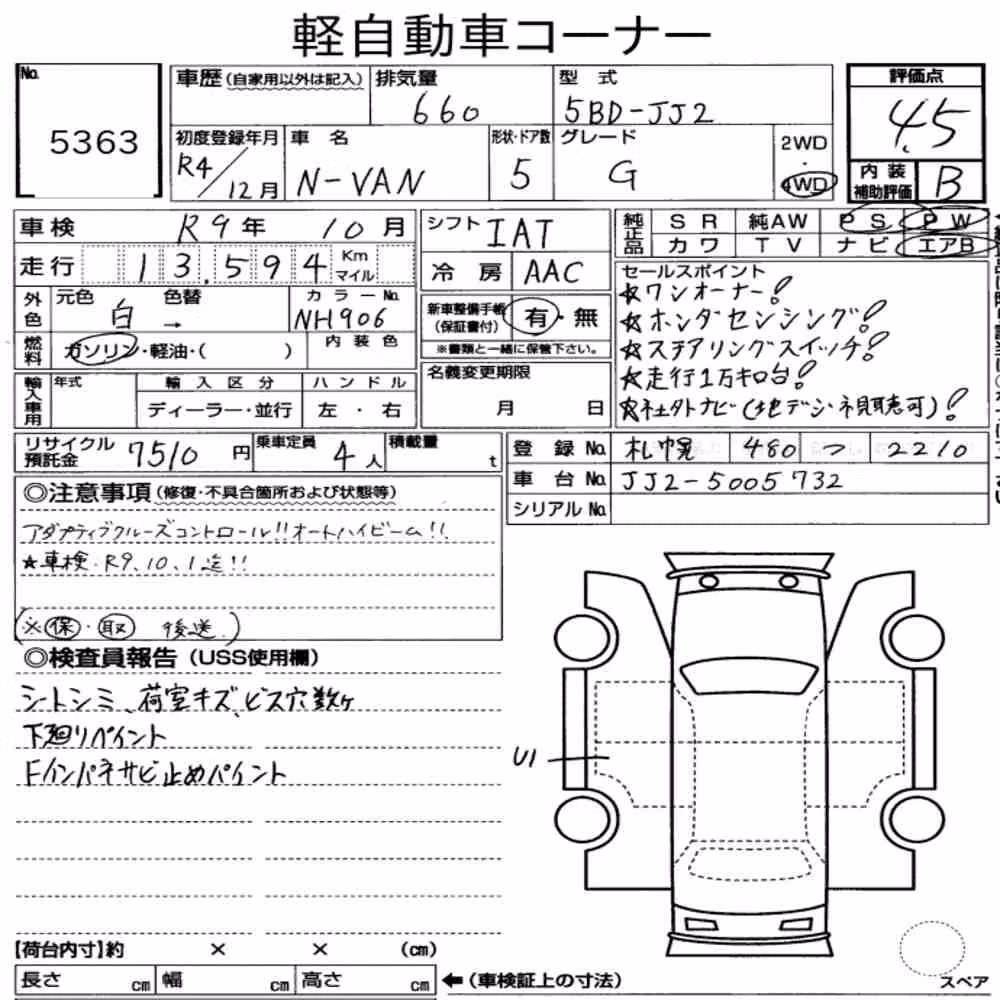 軽自動車コーナー
No. 5363
車歴 (自家用以外は記入)
排気量 660
型式 5BD-JJ2
評価点 4.5
初度登録年月 R4/12月
車名 N-VAN
形状・ドア数 5
グレード G
2WD・4WD
内装補助評価 B
車検 R9年 10月
走行 13,594 Km マイル
外色 元色 白 → 色替
カラーNo. NH906
燃料 ガソリン・軽油・( )
内装色
輸入車用 年式
輸入区分 ディーラー・並行
ハンドル 左・右
シフト IAT
冷房 AAC
新車整備手帳(保証書付) 有・無
※書類と一緒に保管下さい。
名義変更期限 月 日
純正品 SR 純AW PS PW
カワ TV ナビ エアB
セールスポイント
☆ワンオーナー!
☆ホンダセンシング!
☆ステアリングスイッチ!
☆走行1万キロ台!
☆社外ナビ(地デジ・視聴可)!
リサイクル預託金 7510円
乗車定員 4人
積載量 t
登録No. 札幌 480 つ 2210
車台No. JJ2-5005732
シリアルNo.
◎注意事項(修復・不具合箇所および状態等)
アダプティブクルーズコントロール!!オートハイビーム!!
★車検・R9、10、1迄!!
(※保・取 後送)
◎検査員報告(USS使用欄)
シートシミ、荷室キズ、ビス穴数ヶ
下廻リペイント
Fインパネサビ止めペイント
U1
【荷台内寸】約 × × (cm)
長さ cm 幅 cm 高さ cm
←(車検証上の寸法)
スペア